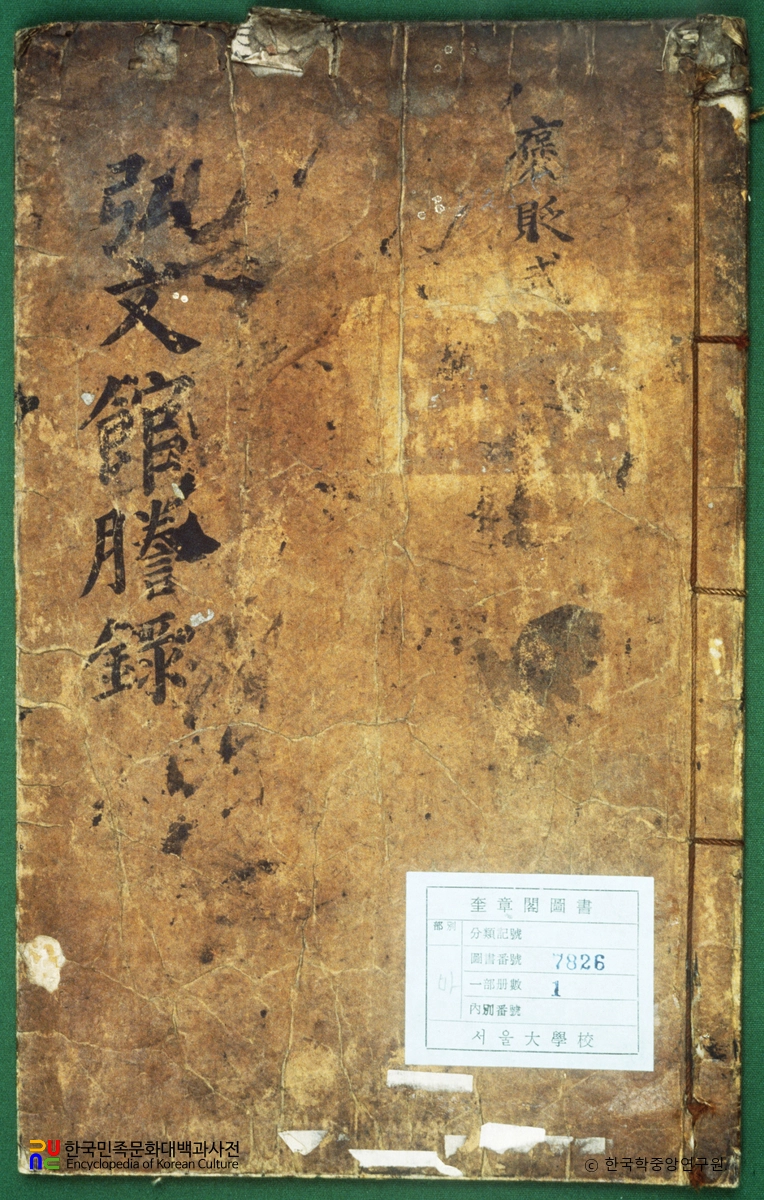 褒貶式
弘文館謄録
奎章閣圖書
部別
分類記號
圖書番號 7826
一部册數 1
內別番號
마
서울大學校
한국민족문화대백과사전
Encyclopedia of Korean Culture
© 한국학중앙연구원